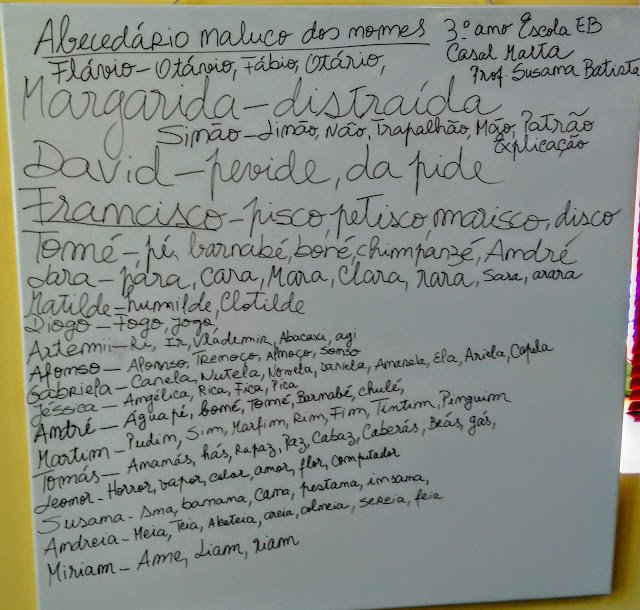 Abecedário maluco dos nomes 3º ano Escola EB
Casal Marta
Prof. Susana Batista
Flávio - Otávio, Fábio, Otário,
Margarida - distraída
Simão - Limão, Não, Trapalhão, Mão, Patrão
Explicação
David - pevide, da pide
Francisco - pisco, petisco, marisco, disco
Tomé - pé, barnabé, boné, chimpanzé, André
Lara - para, cara, Mara, Clara, rara, Sara, arara
Matilde - humilde, Clotilde
Diogo - Fogo, jogo
Artemii - Ri, Ir, Vlademir, Abacaxi, agi
Afonso - Alonso, Tremoço, Almoço, Sonso
Gabriela - Canela, Nutela, Novela, Daniela, Amarela, Ela, Ariela, Capela
Jéssica - Angélica, Rica, Fica, Pica
André - Água pé, boné, Tomé, Barnabé, chulé,
Martim - Pudim, Sim, Marfim, Rim, Fim, Timtim, Pinguim
Tomás - Ananás, hás, Rapaz, Paz, Cabaz, Caberás, Beás, gás,
Leonor - Horror, vapor, calor, amor, flor, computador
Susana - Ana, banana, Cana, pestana, insana,
Andreia - Meia, Teia, Alcateia, areia, colmeia, sereia, feia
Miriam - Ame, Liam, riam